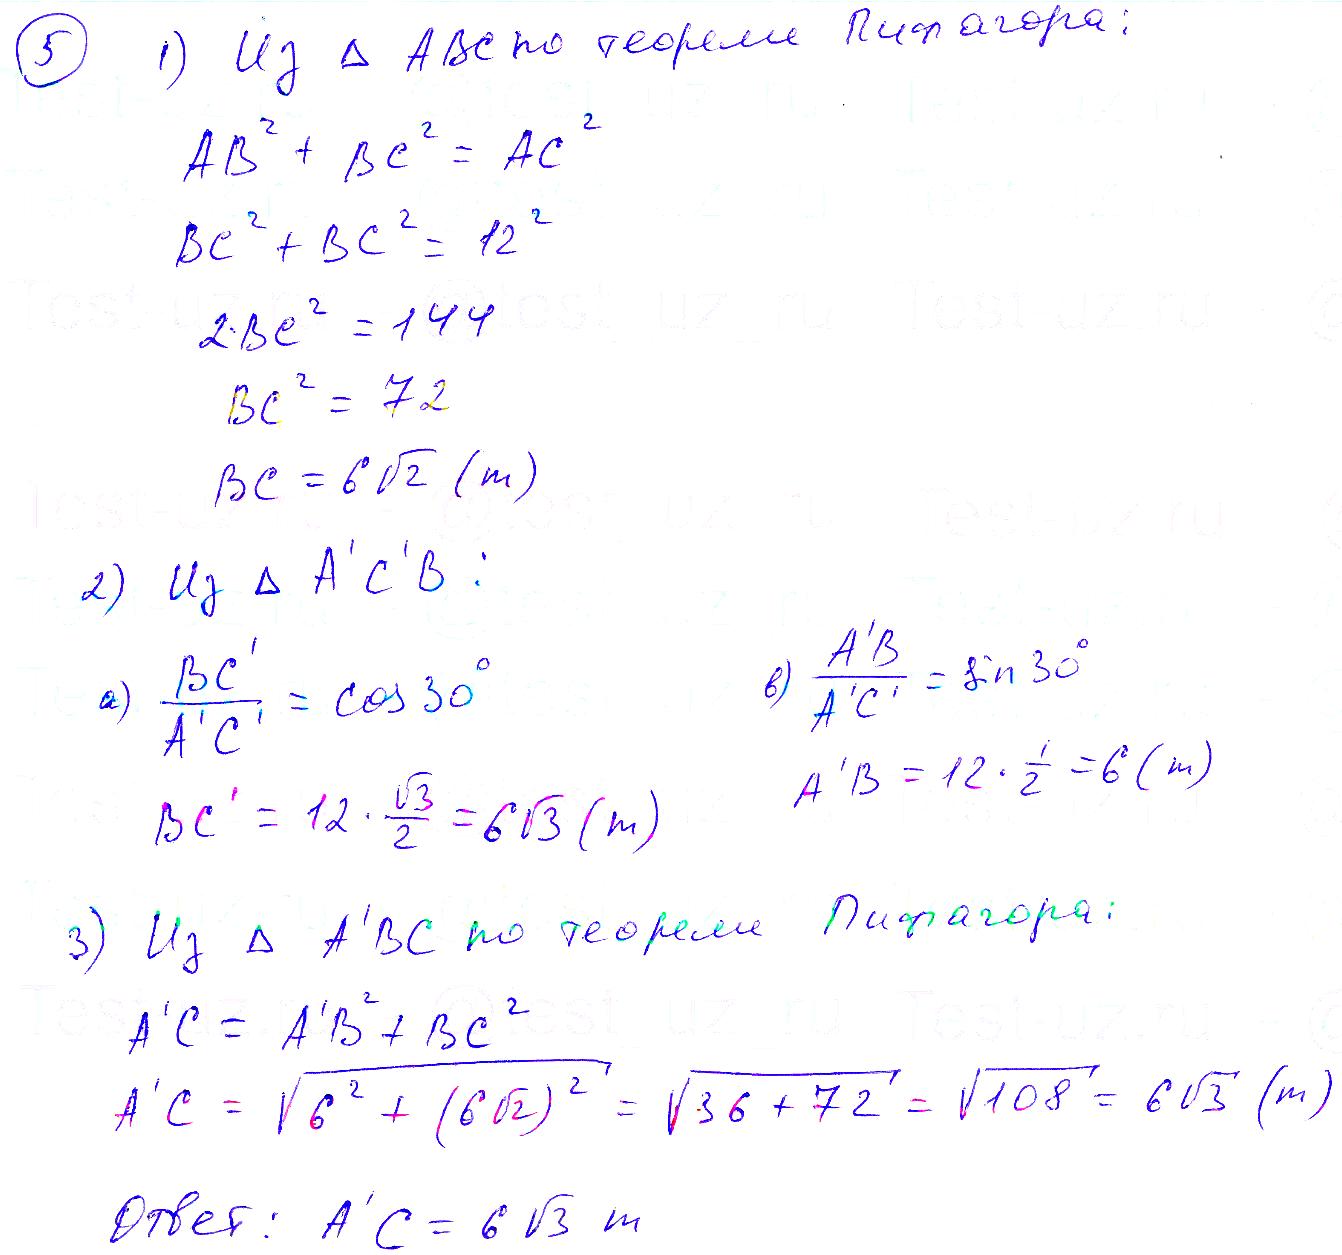 5 1) Из Δ ABC по теореми Пифагора:
AB² + BC² = AC²
BC² + BC² = 12²
2·BC² = 144
BC² = 72
BC = 6√2 (m)
2) Из Δ A'C'B:
a) BC'/A'C' = cos 30°
BC' = 12 · √3/2 = 6√3 (m)
в) A'B/A'C' = sin 30°
A'B = 12 · 1/2 = 6 (m)
3) Из Δ A'BC по теореми Пифагора:
A'C = A'B² + BC²
A'C = √(6² + (6√2)²) = √(36 + 72) = √108 = 6√3 (m)
Ответ: A'C = 6√3 m